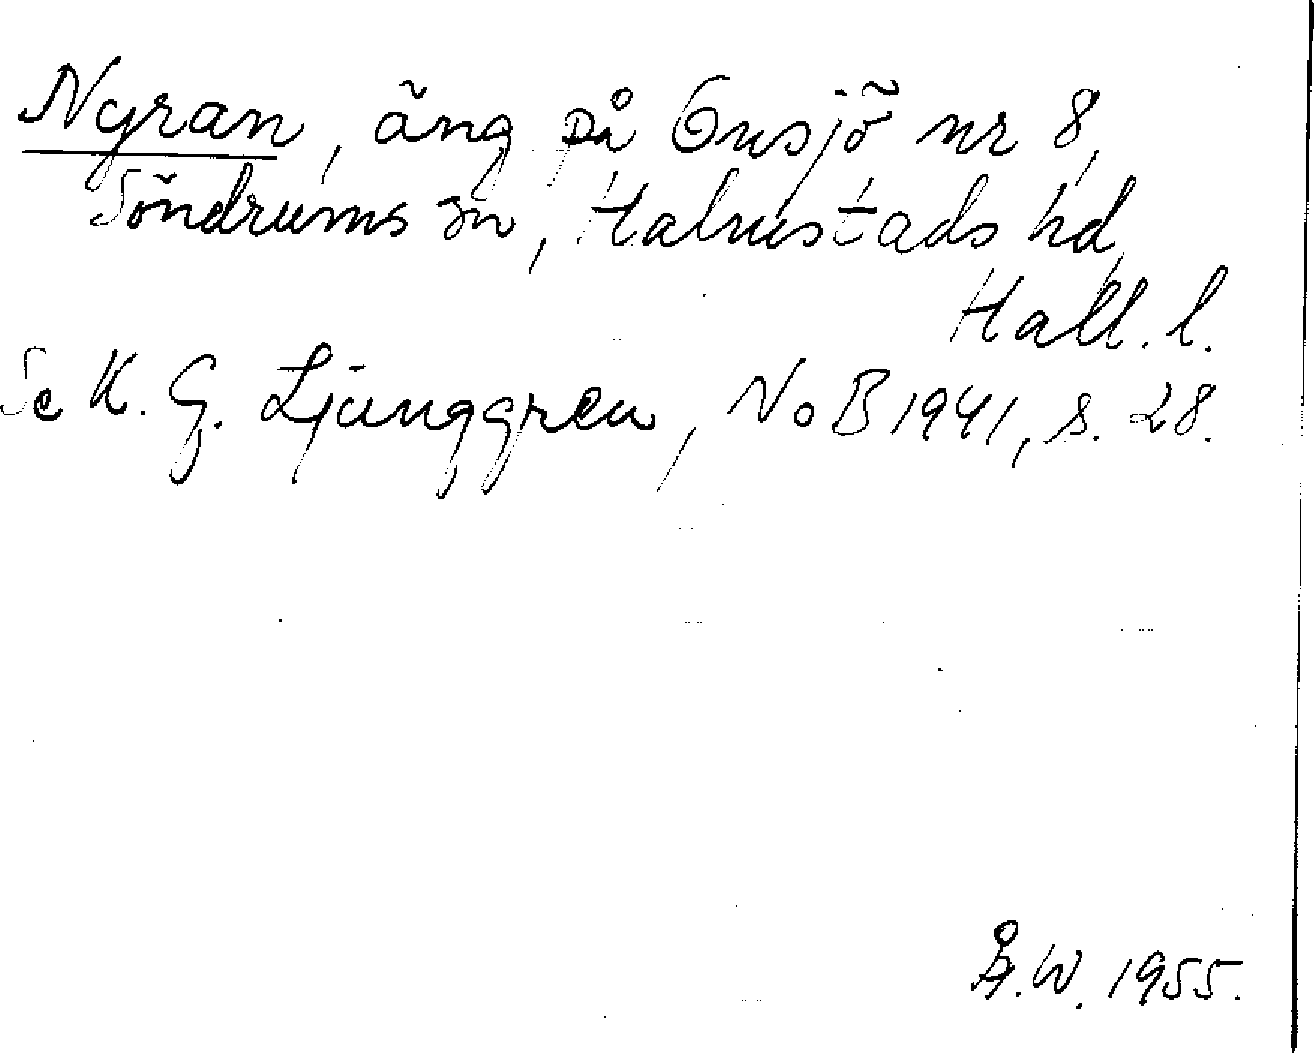 Nyran, äng på Onsjö nr 8,
Söndrums sn, Halmstads hd,
Hall. l.
Se K. G. Ljunggren, NoB 1941, s. 28.
Å.W. 1955.